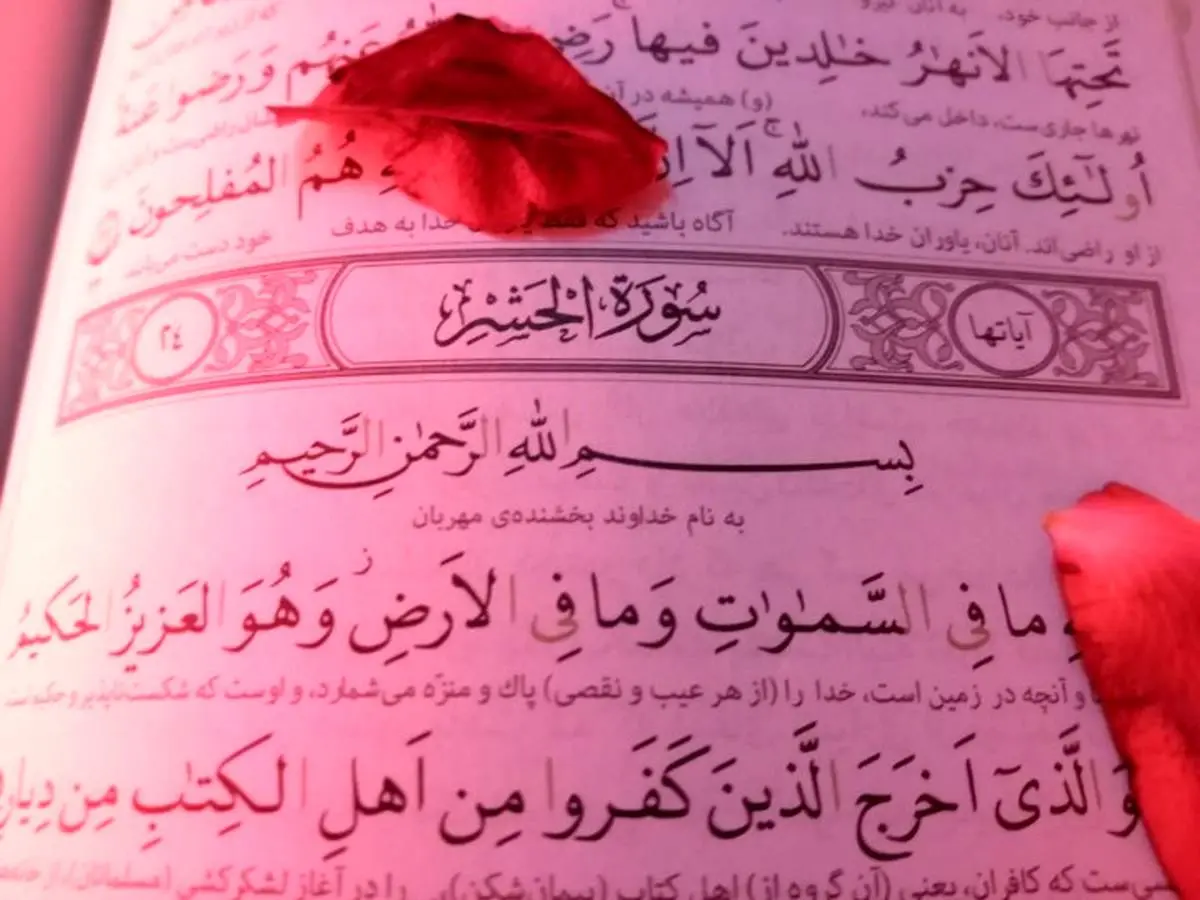 از جانب خود، به آنان نیرو
تَحتِهَا الاَنهٰرُ خٰلِدینَ فیها رَضِیَ عَنهُم وَ رَضوا عَنهُ
نهرها جاری‌ست، داخل می‌کند، (و) همیشه در آن
اُولٰئِكَ حِزبُ اللهِ اَلآ اِنَّ هُمُ المُفلِحونَ
از او راضی‌اند. آنان، یاوران خدا هستند. آگاه باشید که فقط خدا به هدف خود دست می‌یابند
آیاتها سُورَةُ الْحَشْر ٢٤
بِسمِ اللهِ الرَّحمٰنِ الرَّحیمِ
به نام خداوند بخشنده‌ی مهربان
ما فِی السَّمٰوٰتِ وَ ما فِی الاَرضِ ز وَ هُوَ العَزیزُ الحَکیمُ
و آنچه در زمین است، خدا را (از هر عیب و نقصی) پاك و منزّه می‌شمارد، و اوست که شکست‌ناپذیر و حکیم است
الَّذیٓ اَخرَجَ الَّذینَ کَفَروا مِن اَهلِ الکِتٰبِ مِن دِیارِ
که کافران، یعنی (آن گروه از) اهل کتاب (پیمان‌شکن)، را در آغاز لشکرکشی (مسلمانان) از